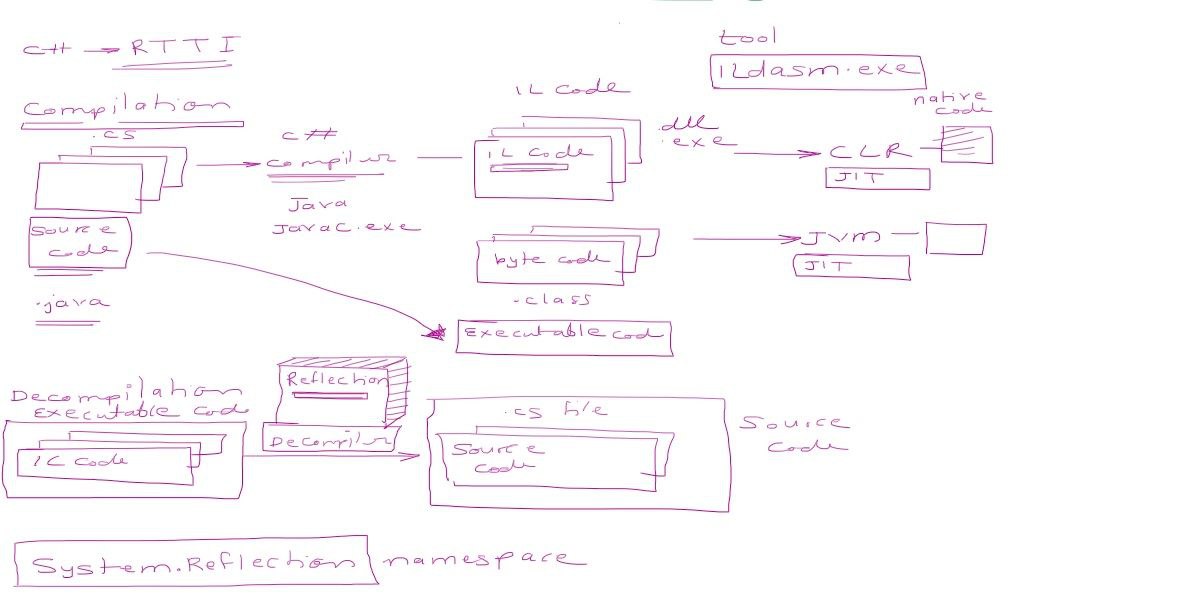 C++ → RTTI
tool
ILdasm.exe
Compilation
.cs
C#
compiler
Java
Javac.exe
IL Code
IL Code
.dll
.exe
CLR
JIT
native
code
Source
code
.java
byte code
.class
JVM
JIT
Executable code
Decompilation
Executable code
IL code
Reflection
Decompiler
.cs file
Source
code
Source
code
System.Reflection namespace